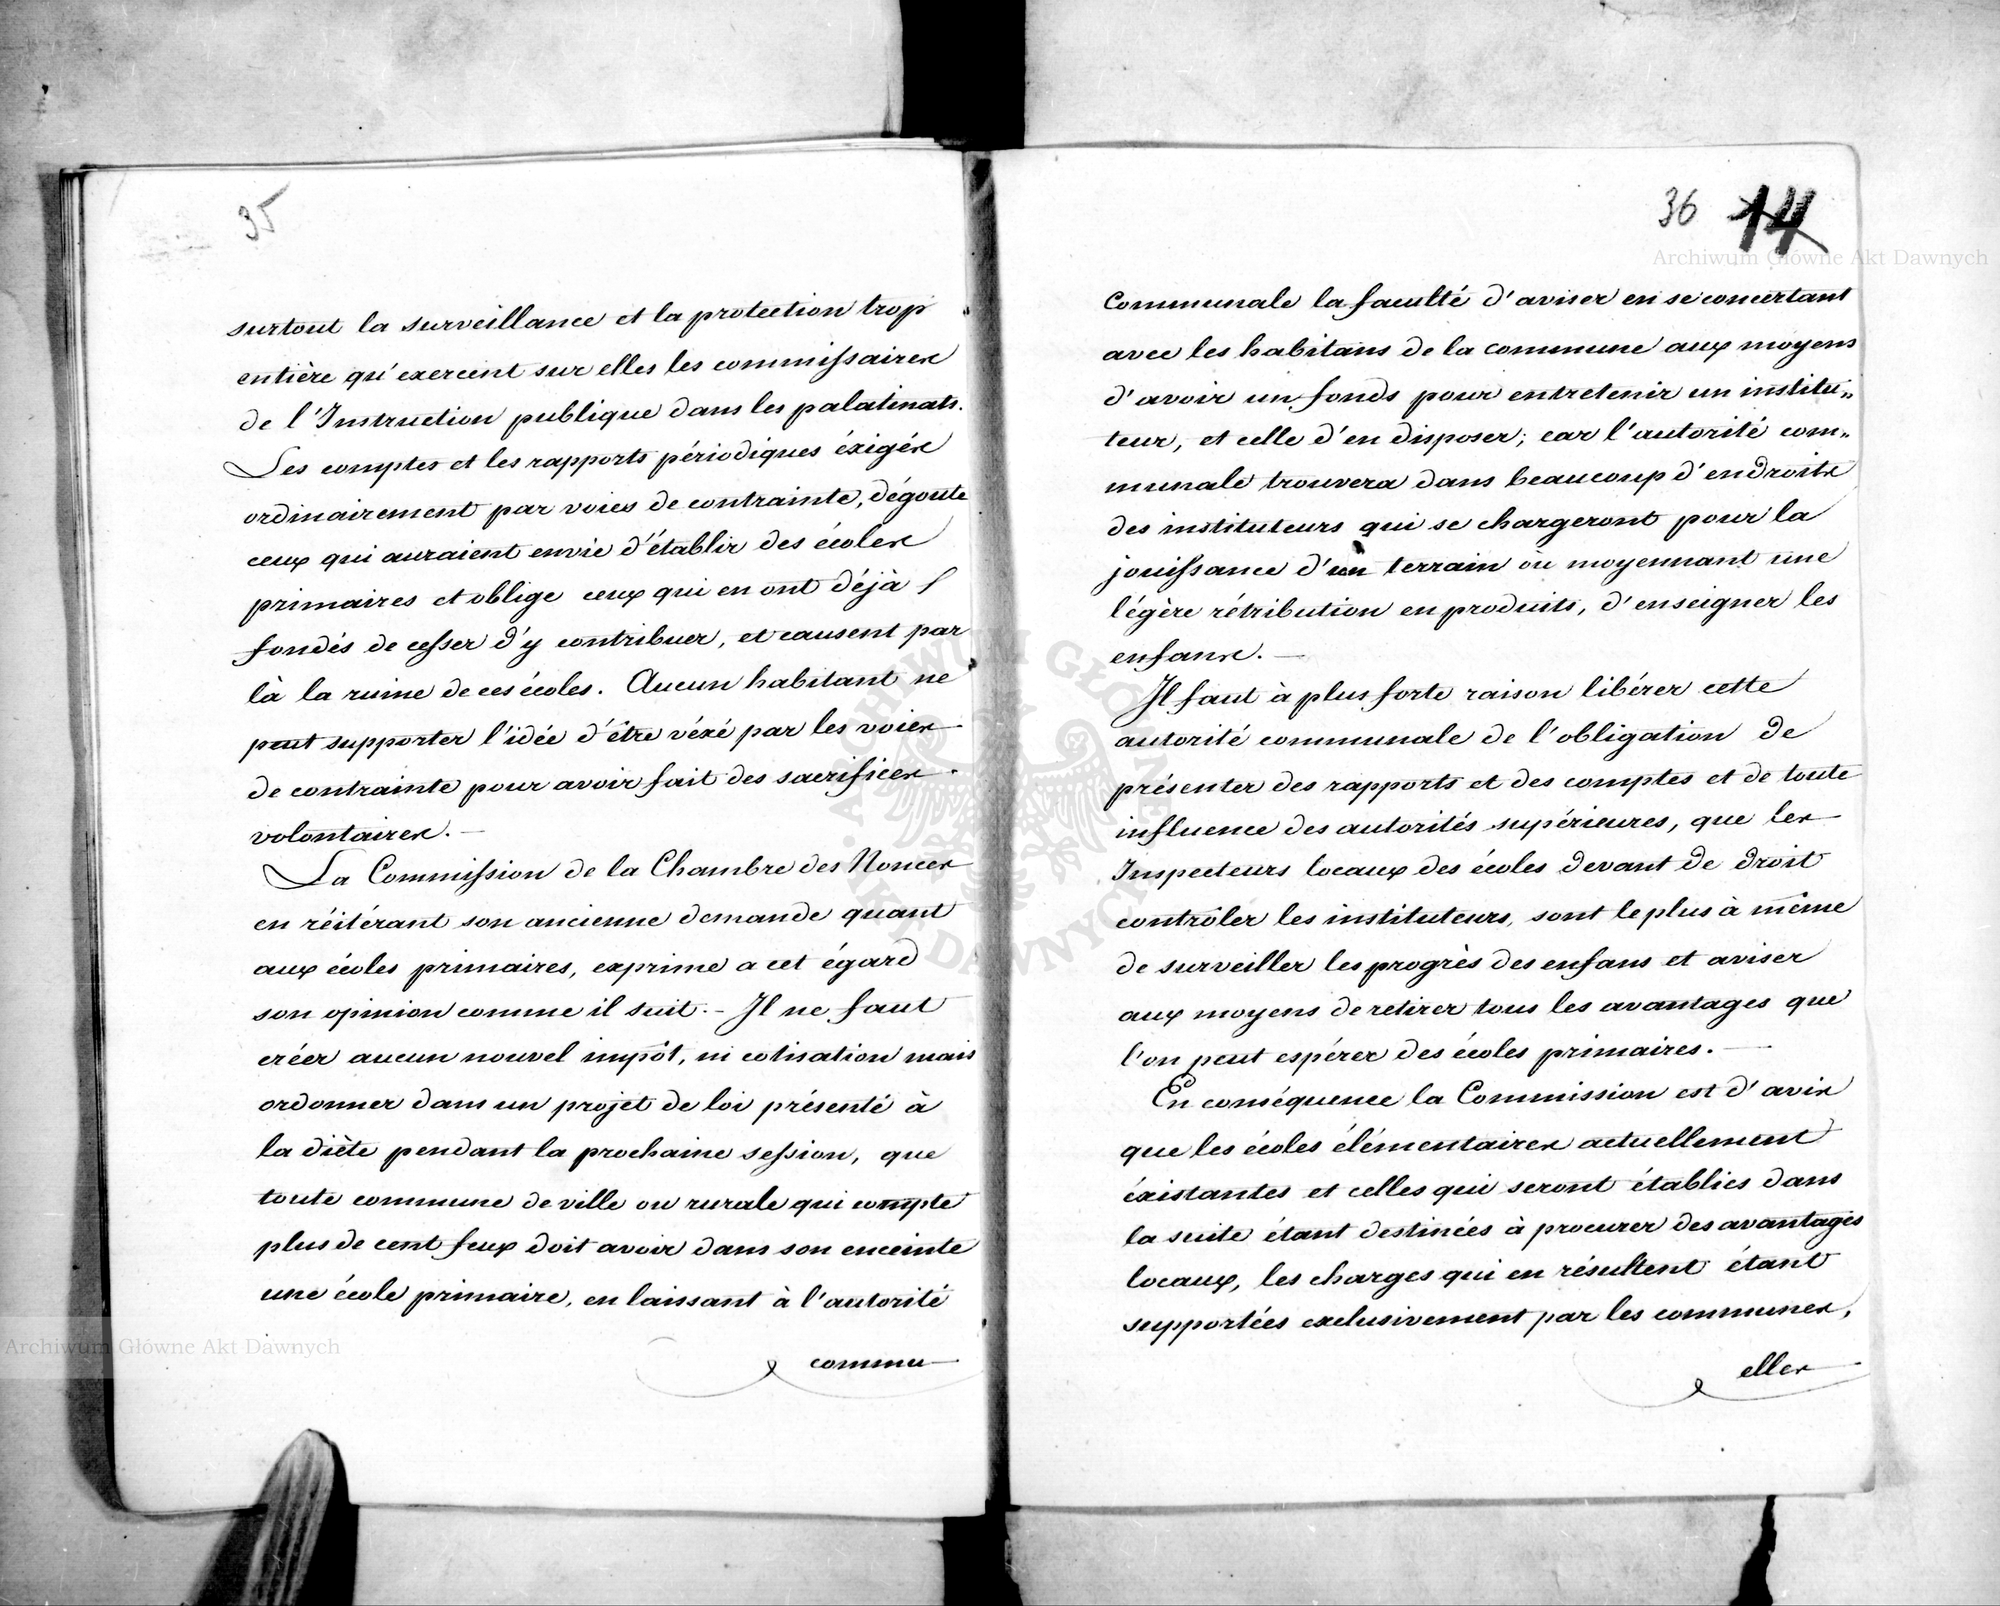 35
surtout la surveillance et la protection trop
entière qu'exercent sur elles les commissaires
de l'Instruction publique dans les palatinats.
Les comptes et les rapports périodiques éxigés
ordinairement par voies de contrainte, dégoute
ceux qui auraient envie d'établir des écoles
primaires et oblige ceux qui en ont déjà
fondés de cesser d'y contribuer, et causent par
là la ruine de ces écoles. Aucun habitant ne
peut supporter l'idée d'être véxé par les voies
de contrainte pour avoir fait des sacrifices
volontaires. —
La Commission de la Chambre des Nonces
en réitérant son ancienne demande quant
aux écoles primaires, exprime a cet égard
son opinion comme il suit. – Il ne faut
créer aucun nouvel impôt, ni cotisation mais
ordonner dans un projet de loi présenté à
la diète pendant la prochaine session, que
toute commune de ville ou rurale qui compte
plus de cent feux doit avoir dans son enceinte
une école primaire, en laissant à l'autorité
commu
36 14
Archiwum Główne Akt Dawnych
Communale la faculté d'aviser en se concertant
avec les habitans de la commune aux moyens
d'avoir un fonds pour entretenir un institu„
teur, et celle d'en disposer; car l'autorité com„
munale trouvera dans beaucoup d'endroits
des instituteurs qui se chargeront pour la
jouissance d'un terrain ou moyennant une
légère rétribution en produits, d'enseigner les
enfans. —
Il faut à plus forte raison libérer cette
autorité communale de l'obligation de
présenter des rapports et des comptes et de toute
influence des autorités supérieures, que les
Inspecteurs locaux des écoles devant de droit
contrôler les instituteurs, sont le plus à même
de surveiller les progrès des enfans et aviser
aux moyens de retirer tous les avantages que
l'on peut espérer des écoles primaires. —
En conséquence la Commission est d'avis
que les écoles élémentaires actuellement
éxistantes et celles qui seront établies dans
la suite étant destinées à procurer des avantages
locaux, les charges qui en résultent étant
supportées exclusivement par les communes,
elles
Archiwum Główne Akt Dawnych
ARCHIWUM GŁÓWNE AKT DAWNYCH